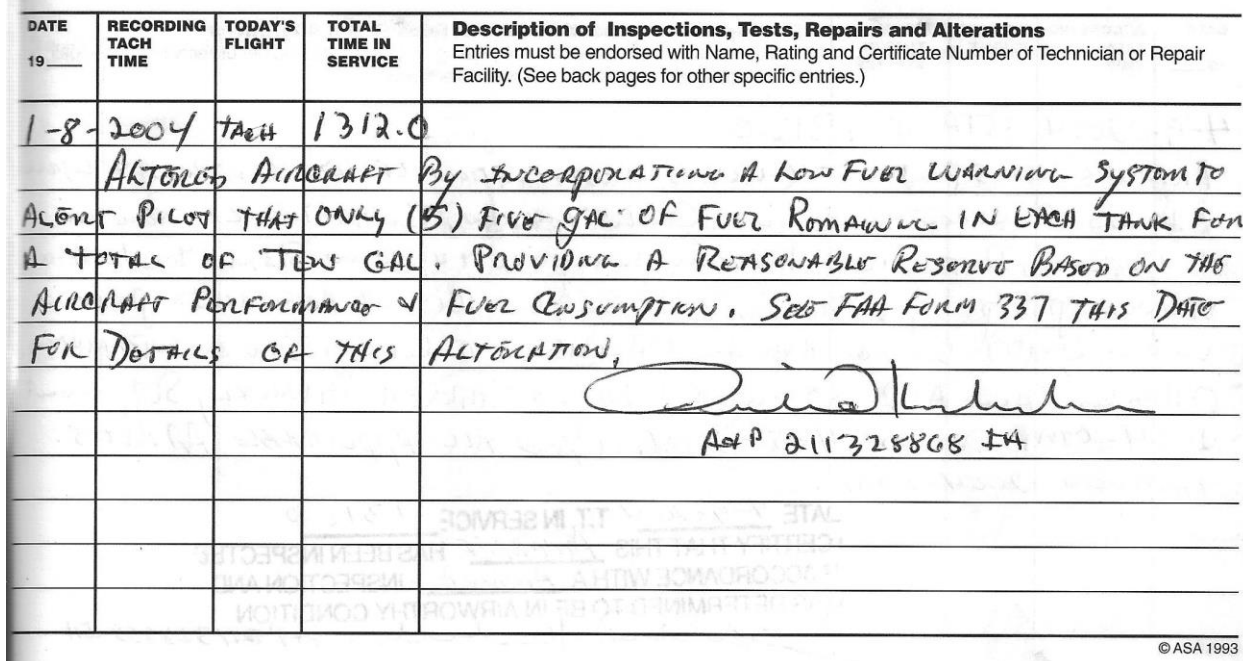 DATE 19 RECORDING TACH TIME TODAY'S FLIGHT TOTAL TIME IN SERVICE Description of Inspections, Tests, Repairs and Alterations
Entries must be endorsed with Name, Rating and Certificate Number of Technician or Repair
Facility. (See back pages for other specific entries.)
1-8-2004 TACH 1312.0
ALTERED AIRCRAFT By INCORPORATING A LOW FUEL WARNING SYSTEM TO
ALERT PILOT THAT ONLY (5) FIVE GAL OF FUEL REMAINING IN EACH TANK FOR
A TOTAL OF TEN GAL. PROVIDING A REASONABLE RESERVE BASED ON THE
AIRCRAFT PERFORMANCE & FUEL CONSUMPTION. SEE FAA FORM 337 THIS DATE
FOR DETAILS OF THIS ALTERATION.
A&P 211328868 IA
DATE T.T. IN SERVICE
I CERTIFY THAT THIS HAS BEEN INSPECTED
IN ACCORDANCE WITH A INSPECTION AND
WAS DETERMINED TO BE IN AIRWORTHY CONDITION
© ASA 1993